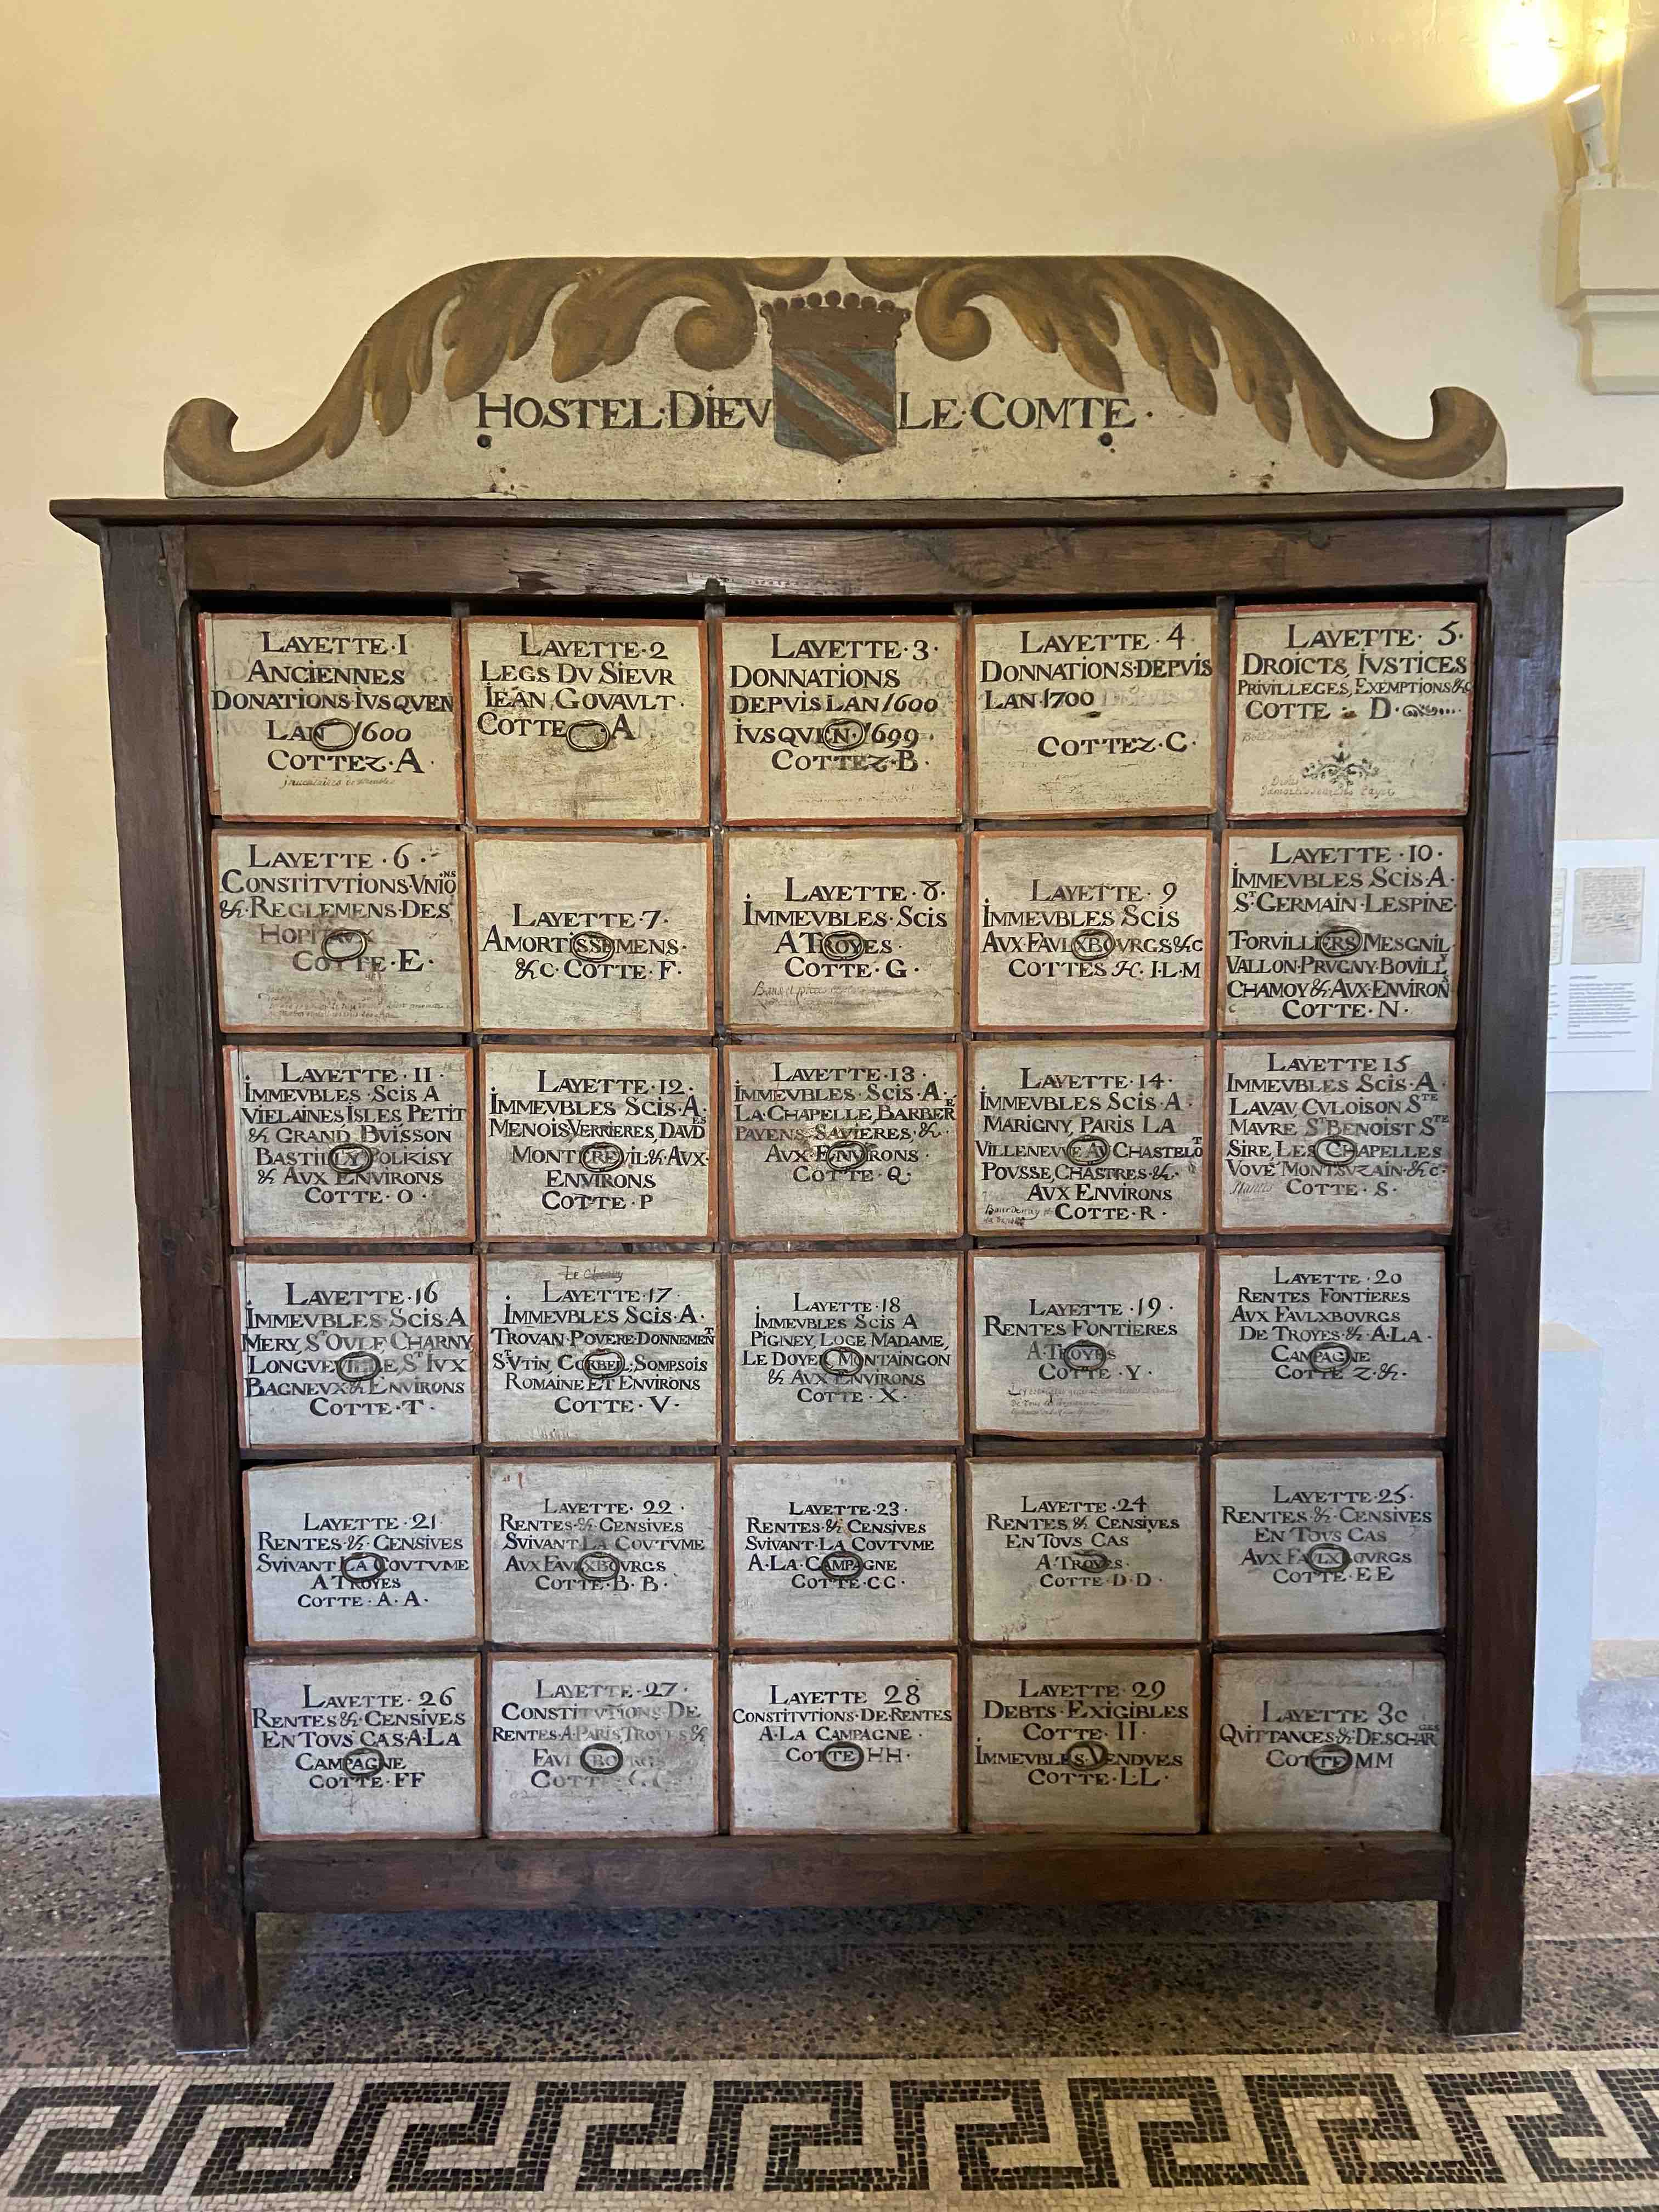 HOSTEL·DIEV LE·COMTE·
LAYETTE·1
ANCIENNES
DONATIONS·IVSQVEN
LAN 1600
COTTEZ·A·
LAYETTE·2
LEGS DV SIEVR
IEAN GOVAVLT·
COTTE A
LAYETTE·3·
DONNATIONS
DEPVIS LAN 1600
IVSQVEN·1699·
COTTEZ·B·
LAYETTE·4
DONNATIONS·DEPVIS
LAN 1700
COTTEZ·C·
LAYETTE·5·
DROICTS, IVSTICES
PRIVILLEGES, EXEMPTIONS &c
COTTE D·
LAYETTE·6·
CONSTITVTIONS·VNIO NS
&·REGLEMENS·DES
HOPITAVX
COTTE·E·
LAYETTE·7·
AMORTISSEMENS·
&C·COTTE·F·
LAYETTE·8·
IMMEVBLES·SCIS
A TROYES·
COTTE·G·
LAYETTE·9
IMMEVBLES SCIS
AVX·FAVLXBOVRGS &c
COTTES H·I·L·M
LAYETTE·10·
IMMEVBLES SCIS·A·
ST GERMAIN·LESPINE·
TORVILLIERS MESGNIL
VALLON·PRVGNY·BOVILLY
CHAMOY &·AVX·ENVIRONS
COTTE·N·
LAYETTE·11·
IMMEVBLES·SCIS A
VIELAINES, ISLES PETIT
& GRAND BVISSON
BASTILLY POLKISY
& AVX ENVIRONS
COTTE·O·
LAYETTE·12·
IMMEVBLES SCIS·A·
MENOIS, VERRIERES, DAVD ES
MONTREVIL·&·AVX·
ENVIRONS
COTTE·P
LAYETTE·13·
IMMEVBLES·SCIS·A·
LA·CHAPELLE, BARBER E
PAYENS, SAVIERES, &·
AVX·ENVIRONS·
COTTE·Q·
LAYETTE·14·
IMMEVBLES·SCIS·A·
MARIGNY, PARIS LA
VILLENEVVE AV CHASTELOT
POVSSE, CHASTRES·&·
AVX ENVIRONS
COTTE·R·
LAYETTE 15
IMMEVBLES SCIS·A
LAVAV CVLOISON STE
MAVRE ST BENOIST STE
SIRE, LES CHAPELLES
VOVÉ MONTSVZAIN·&c·
COTTE·S·
LAYETTE·16
IMMEVBLES·SCIS·A
MERY, ST OVLF CHARNY
LONGVEVILLE, ST IVX
BAGNEVX & ENVIRONS
COTTE·T·
LAYETTE·17·
IMMEVBLES SCIS·A·
TROVAN·POVERE·DONNEMENT
ST VTIN, CORBEIL, SOMPSOIS
ROMAINE ET ENVIRONS
COTTE·V·
LAYETTE·18
IMMEVBLES SCIS A
PIGNEY, LOGE MADAME,
LE DOYER, MONTAINGON
& AVX ENVIRONS
COTTE·X·
LAYETTE·19·
RENTES FONTIERES
A·TROYES
COTTE·Y·
LAYETTE·20
RENTES FONTIERES
AVX FAVLXBOVRGS
DE TROYES·&·A·LA·
CAMPAGNE
COTTE Z·&·
LAYETTE·21·
RENTES·&·CENSIVES
SVIVANT LA COVTVME
A TROYES
COTTE·A·A·
LAYETTE·22·
RENTES·&·CENSIVES
SVIVANT LA COVTVME
AVX FAVLXBOVRGS
COTTE·B·B·
LAYETTE·23·
RENTES·& CENSIVES
SVIVANT·LA COVTVME
A·LA·CAMPAGNE
COTTE·CC·
LAYETTE·24·
RENTES & CENSIVES
EN TOVS CAS
A TROYES·
COTTE·D·D·
LAYETTE·25·
RENTES·&·CENSIVES
EN TOVS CAS
AVX FAVLXBOVRGS
COTTE·EE
LAYETTE·26
RENTES &·CENSIVES
EN TOVS CAS·A·LA
CAMPAGNE
COTTE·FF
LAYETTE·27·
CONSTITVTIONS·DE
RENTES·A·PARIS, TROYES &
LAYETTE 28
CONSTITVTIONS·DE·RENTES
A·LA CAMPAGNE·
COTTE HH·
LAYETTE 29
DEBTS·EXIGIBLES
COTTE·II·
IMMEVBLES VENDVES
COTTE·LL·
LAYETTE 30
QVITTANCES·&·DESCHAR GES
COTTE MM